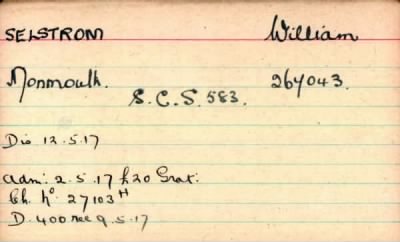 SELSTROM William
Monmouth. 267043.
S.C.S. 583.
Dis 12.5.17
Adm: 2.5.17 £20 Grat:
Ch. No. 27103 H
D. 400 rec 9.5.17